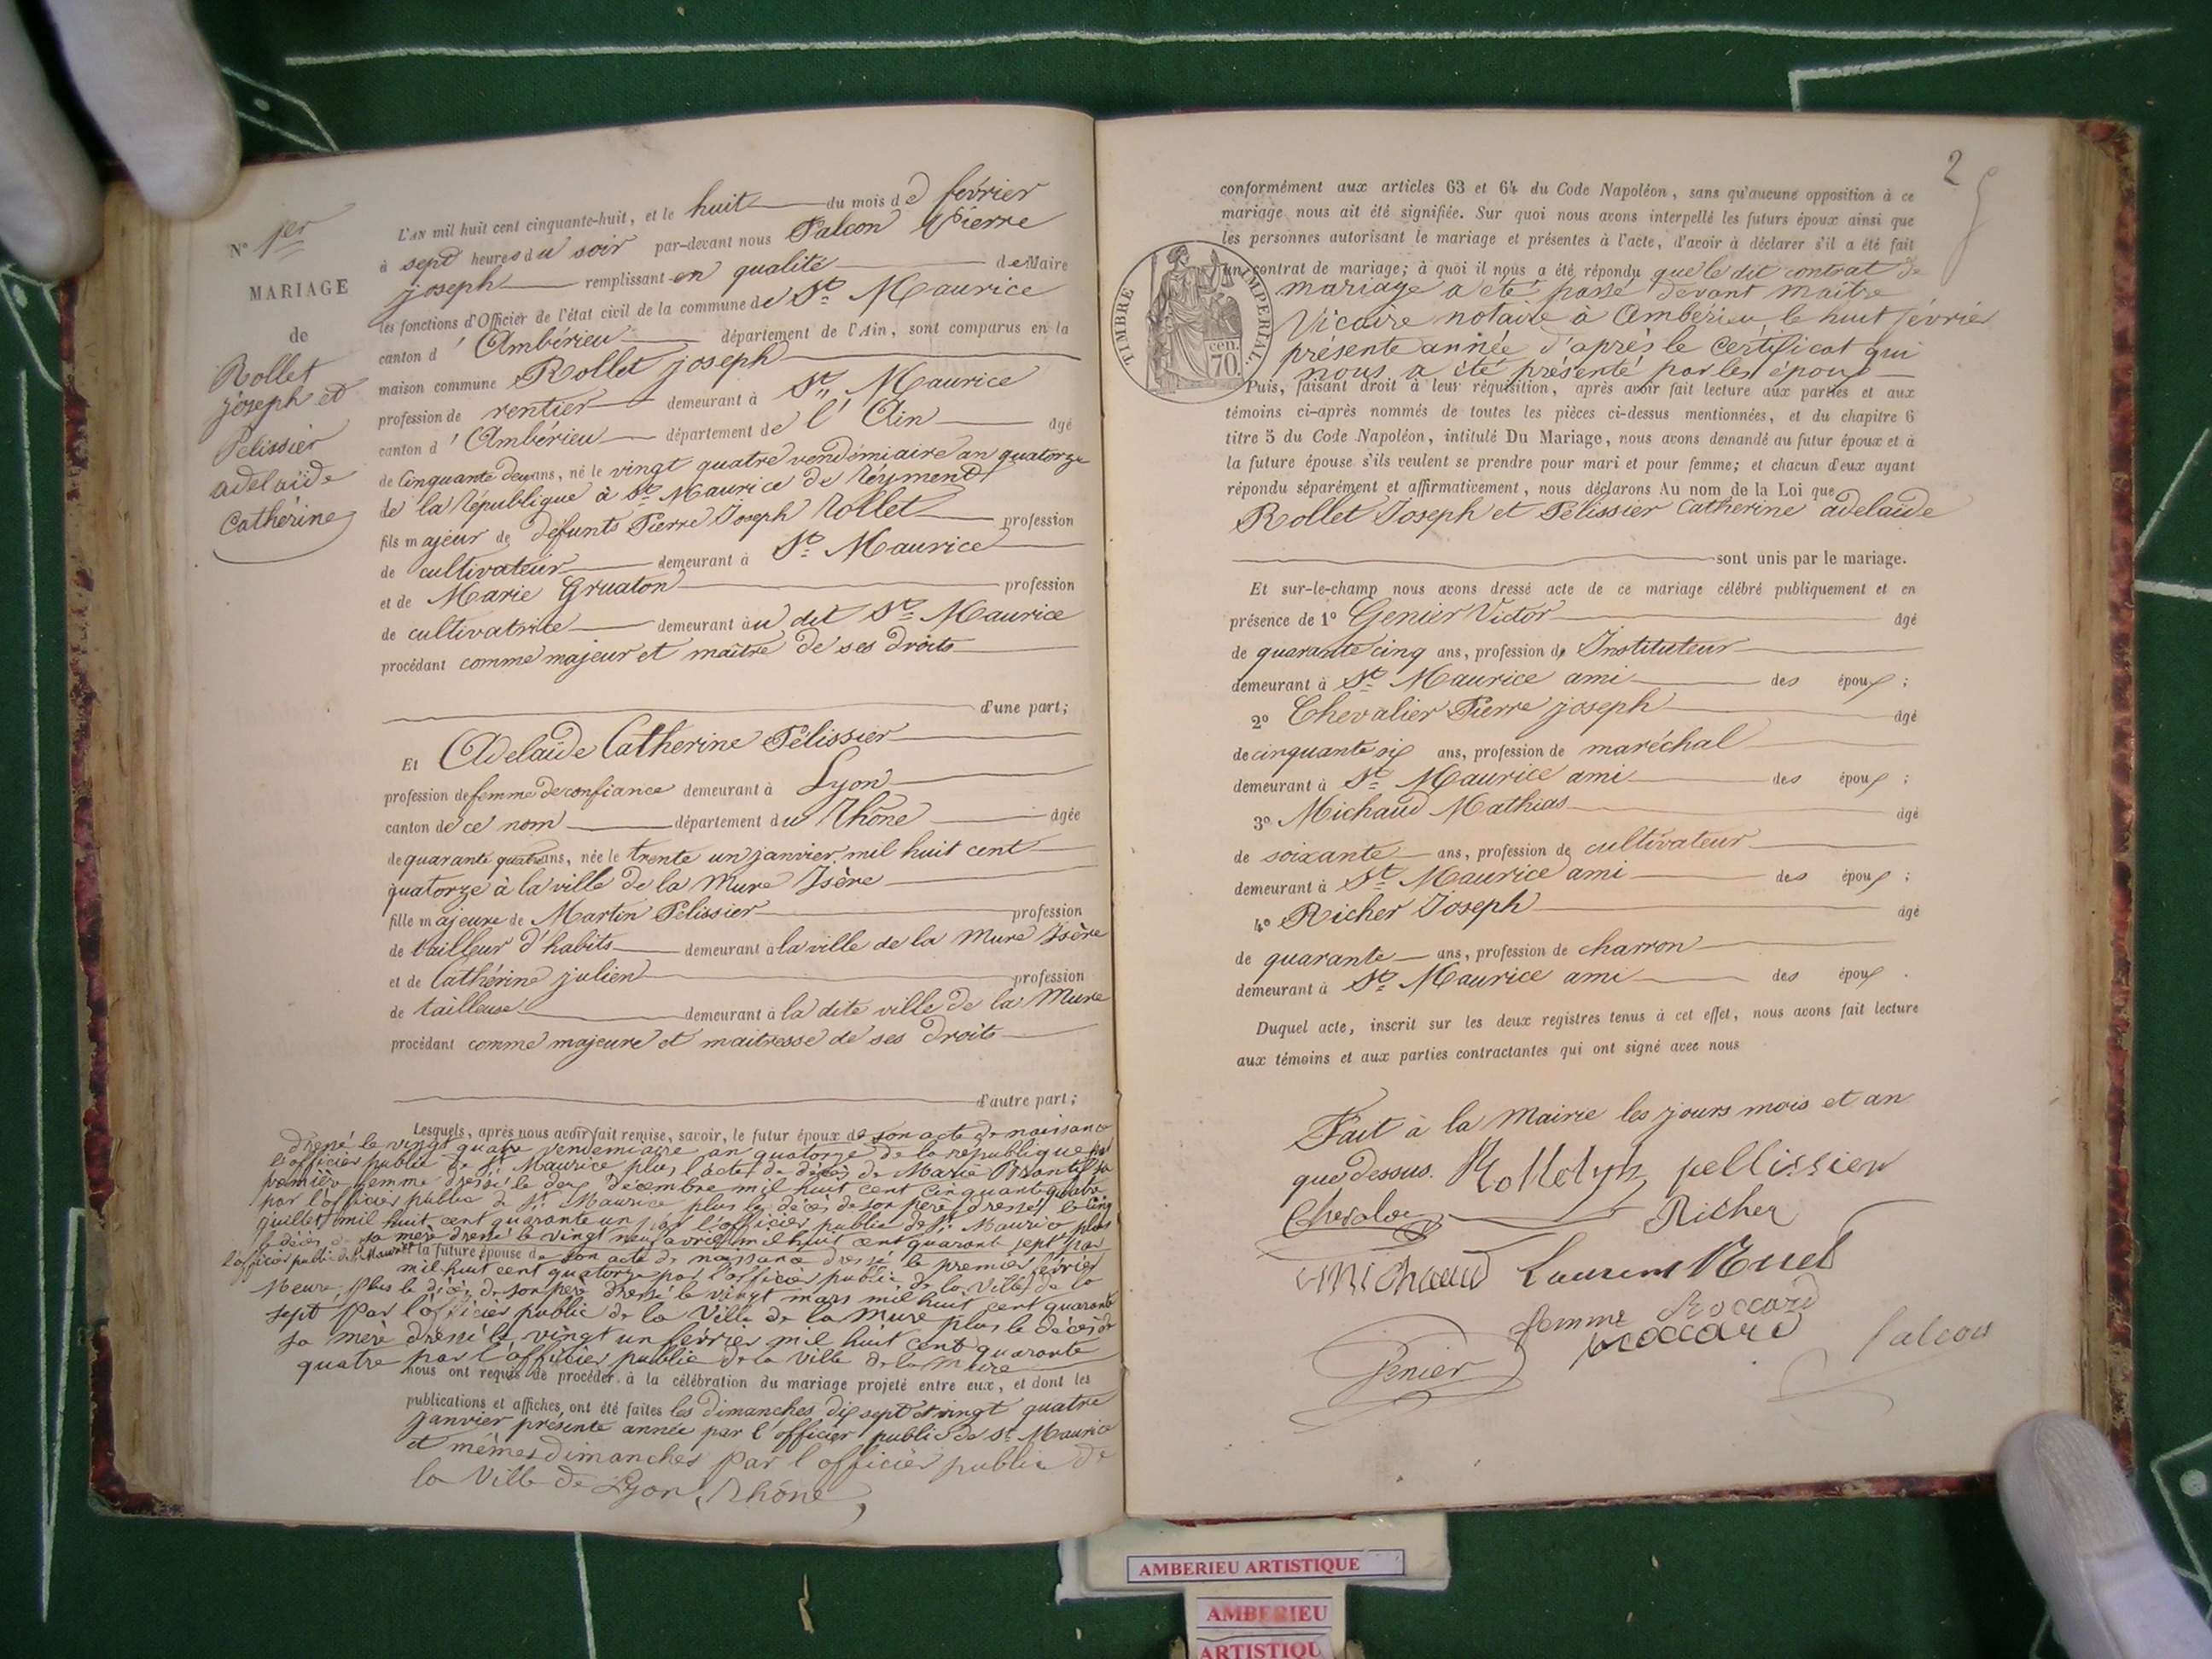 N° 1er
MARIAGE
de
Rollet
joseph et
Pelissier
adelaïde
Catherine
L'AN mil huit cent cinquante-huit, et le huit du mois de février
à sept heures du soir par-devant nous Falcon Pierre
joseph remplissant en qualité de Maire
les fonctions d'Officier de l'état civil de la commune de St Maurice
canton d'Ambérieu département de l'Ain, sont comparus en la
maison commune Rollet joseph
profession de rentier demeurant à St Maurice
canton d'Ambérieu département de l'Ain âgé
de Cinquante deux ans, né le vingt quatre vendémiaire an quatorze
de la république à St Maurice de Réyment
fils majeur de défunts Pierre Joseph Rollet profession
de cultivateur demeurant à St Maurice
et de Marie Gruaton profession
de cultivatrice demeurant au dit St Maurice
procédant comme majeur et maître de ses droits
d'une part;
Et Adelaïde Catherine Pélissier
profession de femme de confiance demeurant à Lyon
canton de ce nom département du Rhône âgée
de quarante quatre ans, née le trente un janvier mil huit cent
quatorze à la ville de la Mure Isère
fille majeure de Martin Pélissier profession
de tailleur d'habits demeurant à la ville de la Mure Isère
et de Cathérine julien profession
de tailleuse demeurant à la dite ville de la Mure
procédant comme majeure et maitresse de ses droits
d'autre part;
Lesquels, après nous avoir fait remise, savoir, le futur époux de son acte de naissance
dressé le vingt quatre vendemiaire an quatorze de la république par
l'officier public de St Maurice plus l'acte de décès de Marie sa
première femme dressé le deux décembre mil huit cent cinquante quatre
par l'officier public de St Maurice plus le décès de son père dressé le cinq
juillet mil huit cent quarante un par l'officier public de St Maurice plus
le décès de sa mère dressé le vingt neuf avril mil huit cent quarante sept par
l'officier public de St Maurice la future épouse de son acte de naissance dressé le premier février
mil huit cent quatorze par l'officier public de la Ville de la
Meure, plus le décès de son père dressé le vingt mars mil huit cent quarante
sept par l'officier public de la Ville de la Mure plus le décès de
sa mère dressé le vingt un février mil huit cent quarante
quatre par l'officier public de la Ville de la Mure
nous ont requis de procéder à la célébration du mariage projeté entre eux, et dont les
publications et affiches ont été faites les dimanches dix sept et vingt quatre
janvier présente année par l'officier public de St Maurice
et mêmes dimanches par l'officier public de
la Ville de Lyon, Rhône,
2
conformément aux articles 63 et 64 du Code Napoléon, sans qu'aucune opposition à ce
mariage nous ait été signifiée. Sur quoi nous avons interpellé les futurs époux ainsi que
les personnes autorisant le mariage et présentes à l'acte, d'avoir à déclarer s'il a été fait
un contrat de mariage; à quoi il nous a été répondu que le dit contrat de
mariage a été passé devant maître
Vicaire notaire à Ambérieu le huit février
présente année d'après le Certificat qui
nous a été présenté par les époux
TIMBRE IMPÉRIAL.
70 cen.
Puis, faisant droit à leur réquisition, après avoir fait lecture aux parties et aux
témoins ci-après nommés de toutes les pièces ci-dessus mentionnées, et du chapitre 6
titre 5 du Code Napoléon, intitulé Du Mariage, nous avons demandé au futur époux et à
la future épouse s'ils veulent se prendre pour mari et pour femme; et chacun d'eux ayant
répondu séparément et affirmativement, nous déclarons Au nom de la Loi que
Rollet Joseph et Pélissier Catherine adelaïde
sont unis par le mariage.
Et sur-le-champ nous avons dressé acte de ce mariage célébré publiquement et en
présence de 1° Genier Victor âgé
de quarante cinq ans, profession de Instituteur
demeurant à St Maurice ami des époux;
2° Chevalier Pierre joseph âgé
de cinquante six ans, profession de maréchal
demeurant à St Maurice ami des époux;
3° Michaud Mathias âgé
de soixante ans, profession de cultivateur
demeurant à St Maurice ami des époux;
4° Richer Joseph âgé
de quarante ans, profession de charron
demeurant à St Maurice ami des époux.
Duquel acte, inscrit sur les deux registres tenus à cet effet, nous avons fait lecture
aux témoins et aux parties contractantes qui ont signé avec nous
Fait à la Mairie les jours mois et an
que dessus. pellissier
Richer
michaud
femme Boccard
Boccard
Genier
falcon
AMBERIEU ARTISTIQUE
AMBERIEU
ARTISTIQU